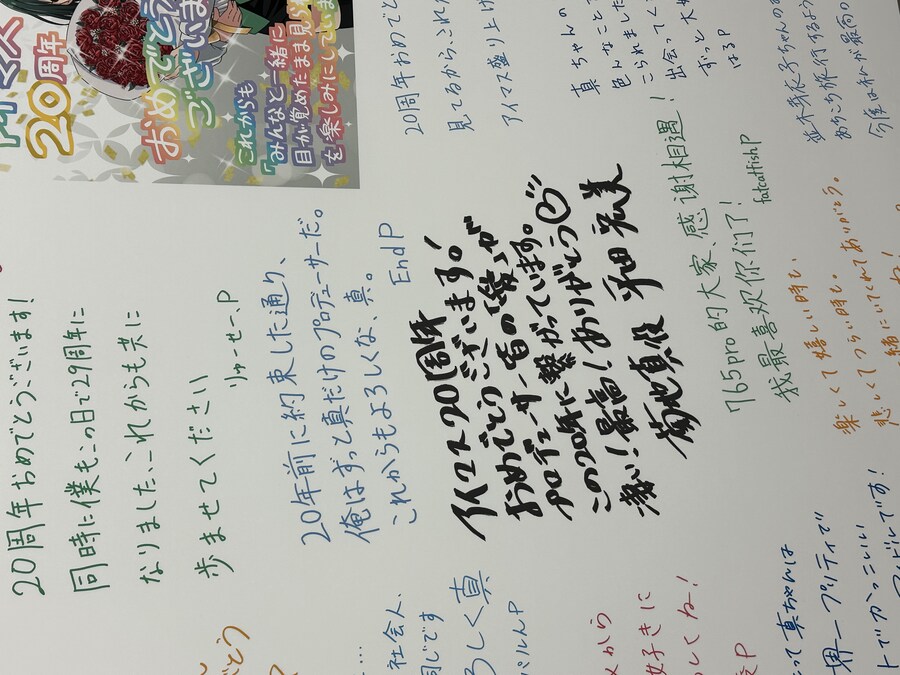 20周年
おめでとう
ございます
これからも
「みんなと一緒に
目が覚めたまま見られ
を楽しみにしていま
20周年おめでと
見てるからこれ
アイマス盛り上げ
真ちゃんの
色んなことで
こられました
出会ってく
ずっと大
はるP
あちこち旅行するよう
今後は私が最高の
20周年おめでとうございます!
同時に僕もこの日で29周年に
なりました、これからも共に
歩ませてください
りゅーせー、P
20年前に約束した通り、
俺はずっと真だけのプロデューサーだ。
これからもよろしくな、真。
End P
アイマス20周年
おめでとうございます!
プロデューサー皆の"愛"が
この20年に繋がっています。
凄い!最高!ありがとう
菊地真役 平田宏美
765pro的大家、感谢相遇!
我最喜欢你们了!
fatcatfish P
楽しくて嬉しい時も、
悲しくてつらい時も、
一緒にいてくれてありがとう。
社会人、
同じです
ろしく真
から
好きに
してね!
P
って真ちゃんは
界一プリティで
トでかっこいい
アイドルです!